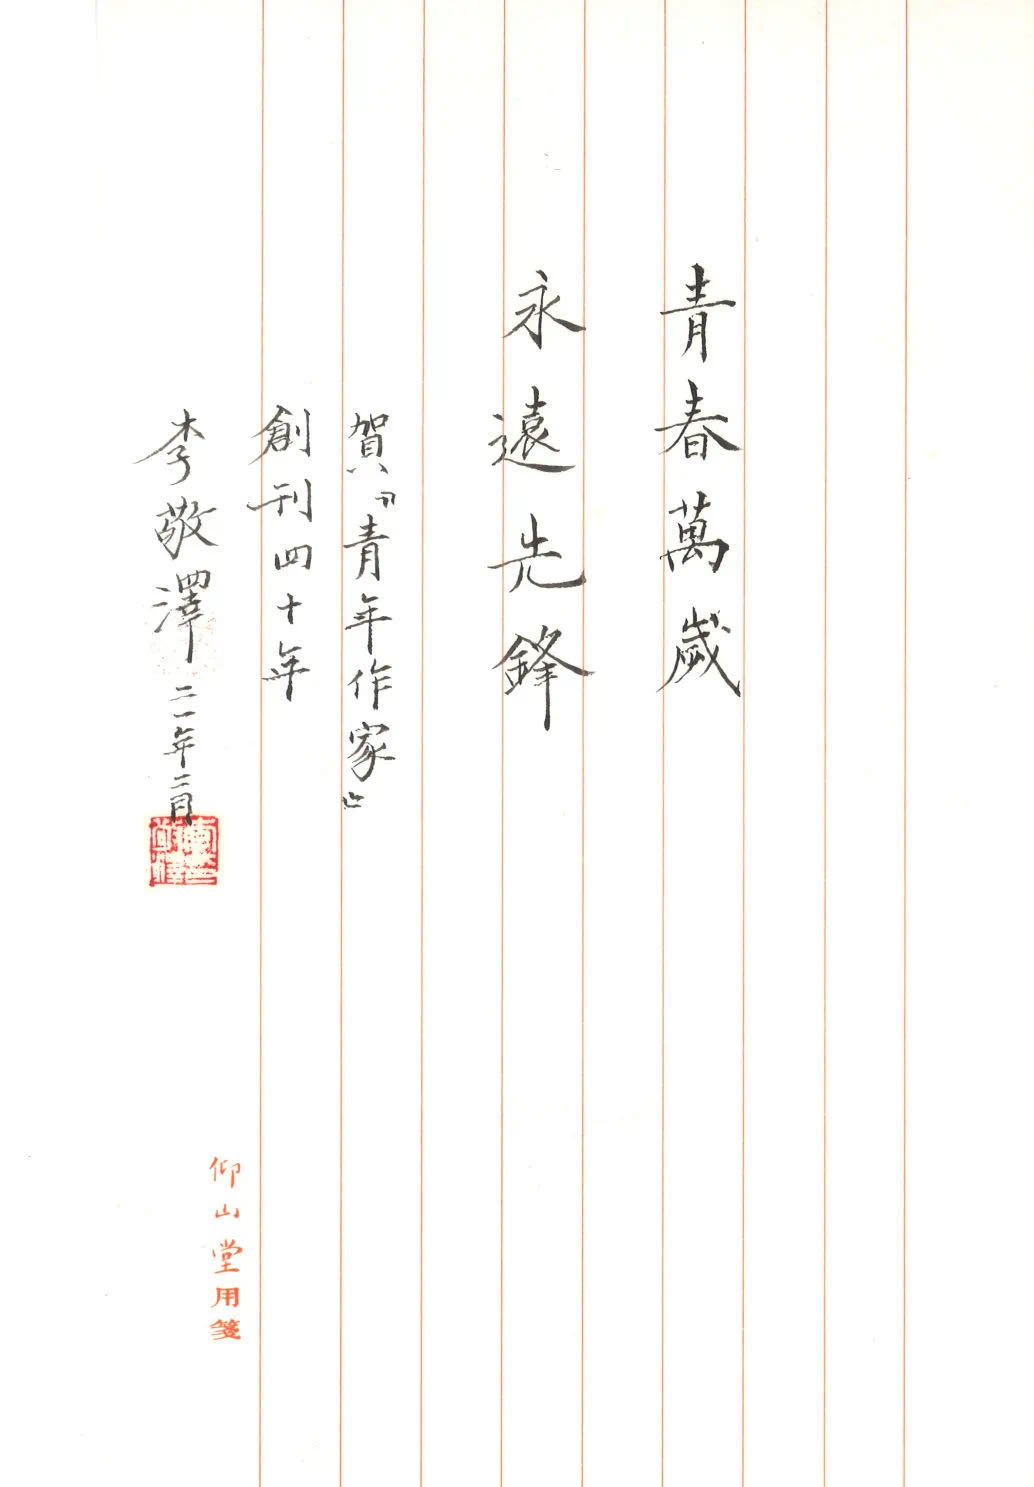 青春萬歲
永遠先鋒
賀『青年作家』
創刊四十年
李敬澤 二一年二月
仰山堂用箋